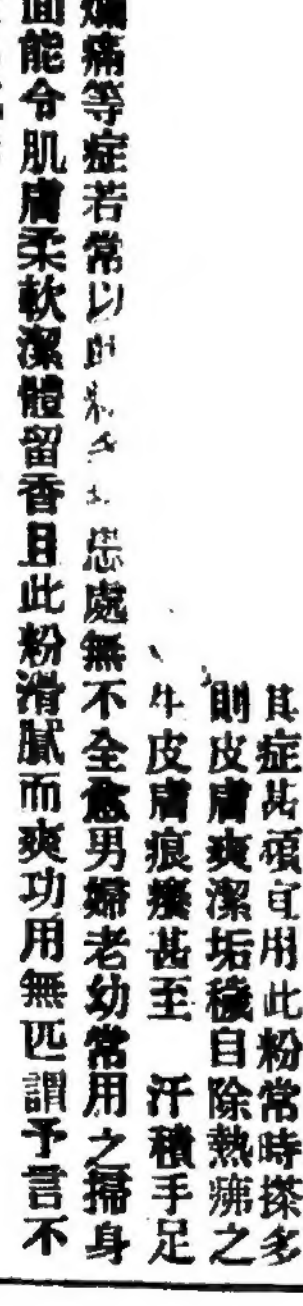 其症甚頑可用此粉常時搽多
則皮膚爽潔垢穢自除熱疿之
生皮膚痕癢甚至 汗積手足
爛痛等症若常以此粉 患處無不全愈男婦老幼常用之搽身
面能令肌膚柔軟潔體留香且此粉滑膩而爽功用無匹謂予言不